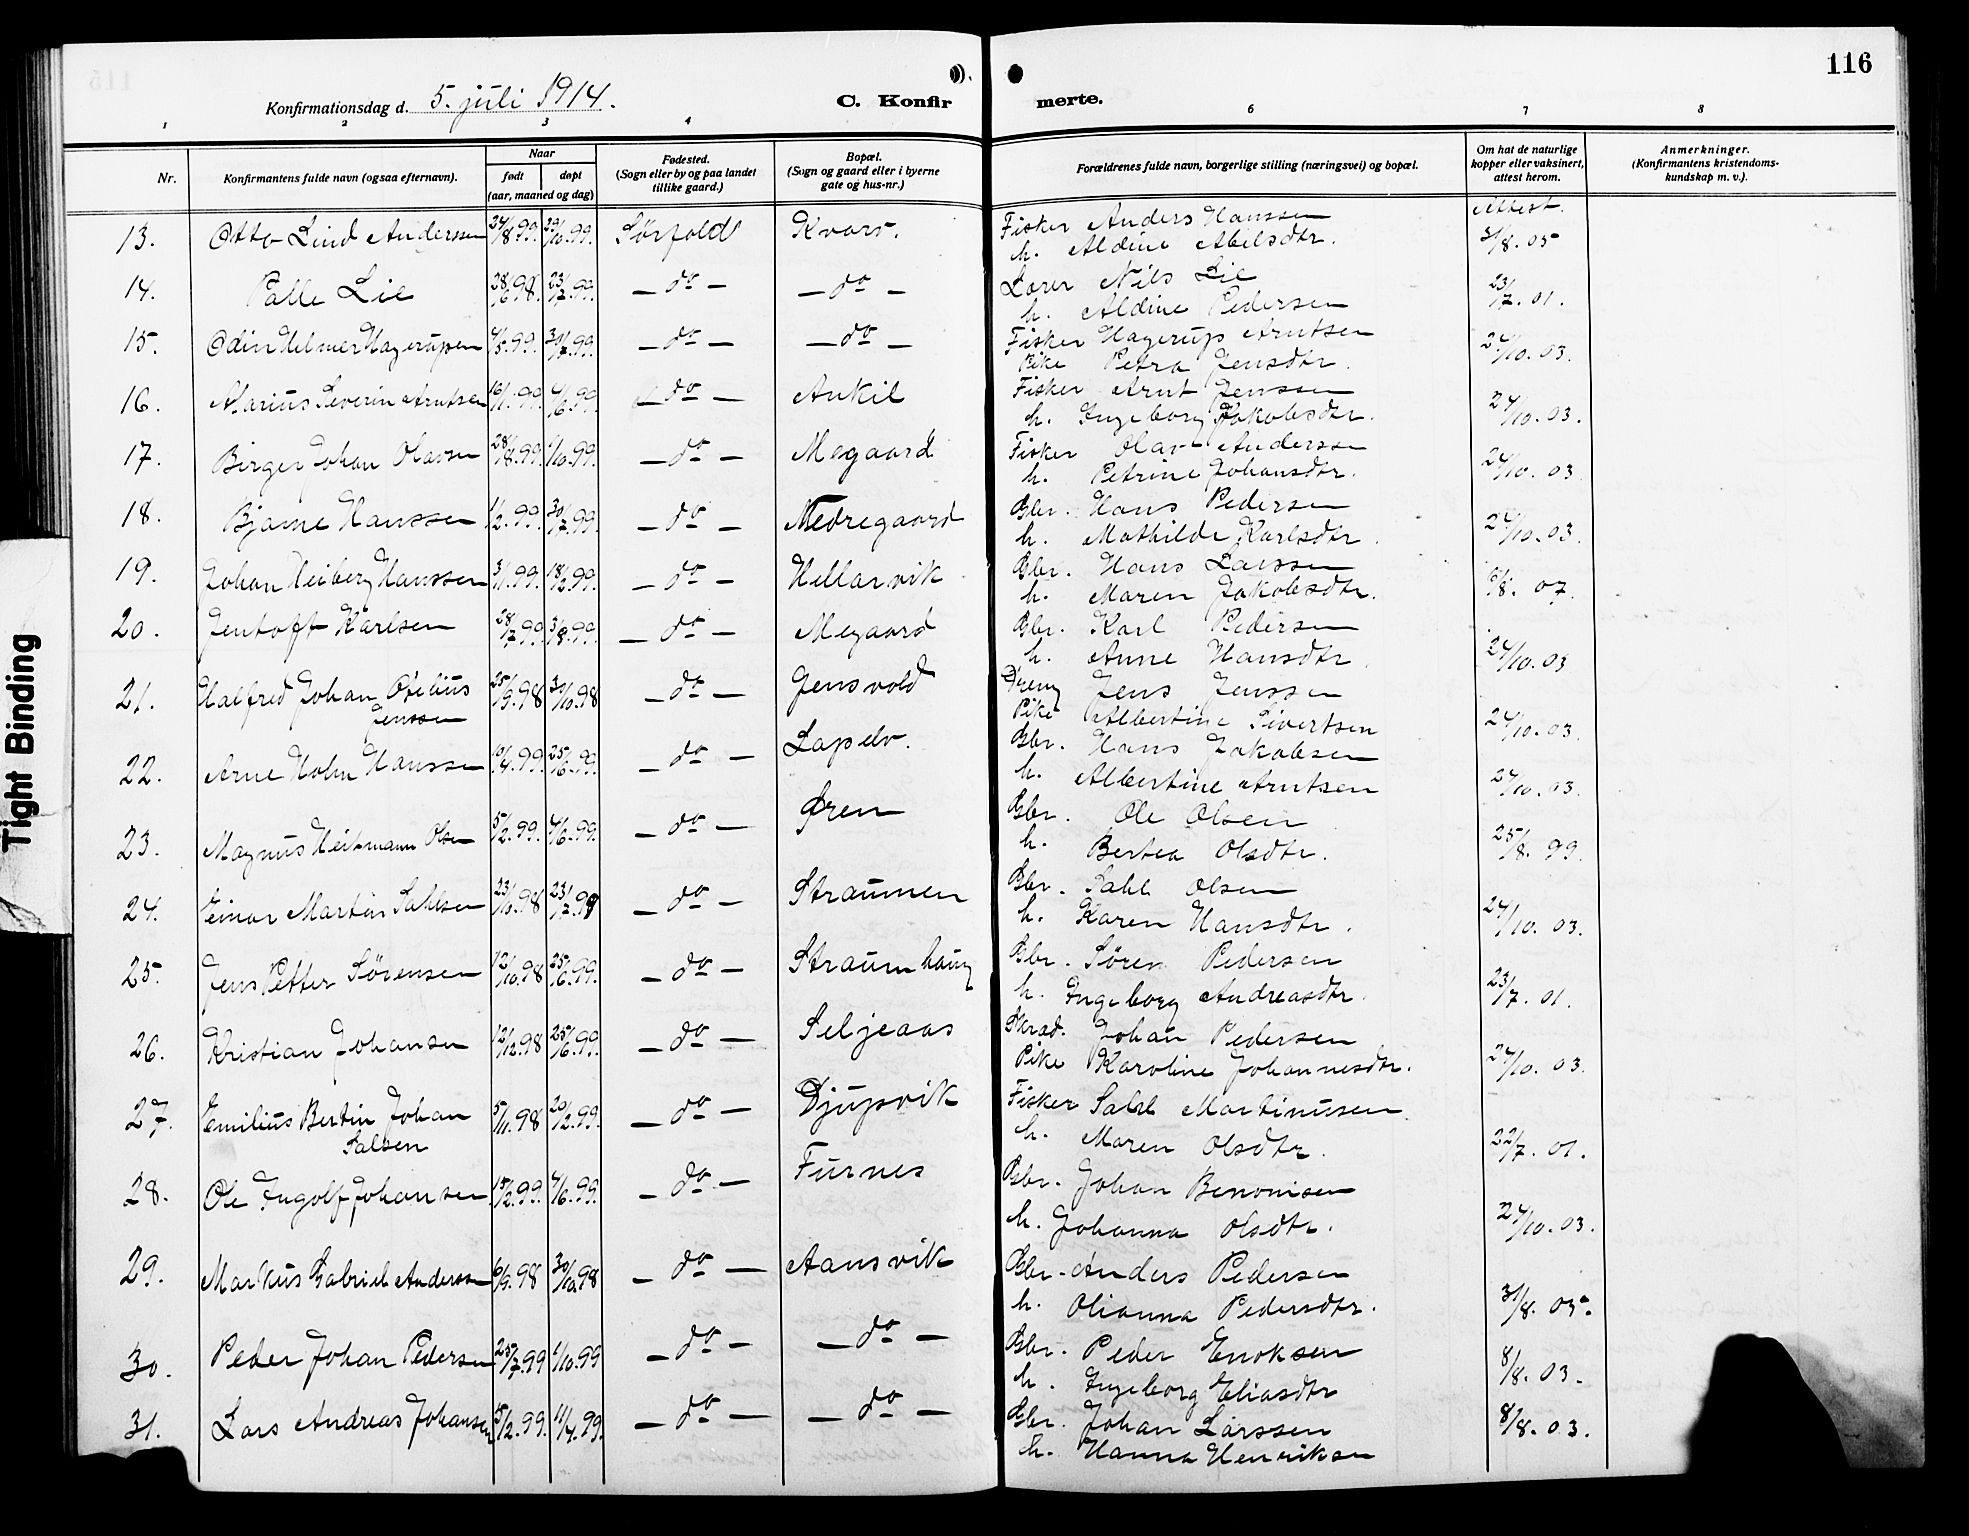 116
115
Konfirmationsdag d. 5. juli 1914.
C. Konfirmerte.
1 2 3 4 5 6 7 8
Nr. Konfirmantens fulde navn (ogsaa efternavn). Naar født døpt (aar, maaned og dag) Fødested. (Sogn eller by og paa landet tillike gaard.) Bopæl. (Sogn og gaard eller i byerne gate og hus-nr.) Forældrenes fulde navn, borgerlige stilling (næringsvei) og bopæl. Om hat de naturlige kopper eller vaksinert, attest herom. Anmerkninger. (Konfirmantens kristendoms-kundskap m. v.).
13. Otto Lind Anderssen 24/8.99. 29/10.99. Sørfold Kvarv. Fisker Anders Hanssen Attest.
h. Aldine Abelsdtr. 31/8.05
14. Palle Lie 28/6.98. 23/7.99. — do — — do — Lærer Nils Lie
h. Aldine Pedersen 23/7.01.
15. Odin Helmer Hagerupsen 4/5.99. 30/7.99. — do — — do — Fisker Hagerup Arntsen
Pike Petra Jensdtr. 24/10.03.
16. Marius Severin Arntsen 16/1.99. 4/6.99. — do — Ankil Fisker Arnt Jenssen
h. Ingeborg Jakobsdtr. 24/10.03.
17. Birger Johan Olavsen 28/8.99. 1/10.99. — do — Megaard Fisker Olav Anderssen
h. Petrine Johansdtr. 24/10.03
18. Bjarne Hanssen 1/2.99. 30/7.99. — do — Nedregaard Gbr. Hans Pedersen
h. Mathilde Karlsdtr. 24/10.03.
19. Johan Heiberg Hanssen 3/1.99. 18/2.99. — do — Hellarvik Gbr. Hans Larssen
h. Maren Jakobsdtr. /8.07.
20. Jentoft Karlsen 28/7.99. 3/8.99. — do — Megaard Gbr. Karl Pedersen
h. Anne Hansdtr. 24/10.03
21. Halfred Johan Otelius 25/9.98 30/10.98 — do — Jensvold Dreng Jens Jenssen
Jenssen Pike Albertine Sivertsen 24/10.03.
22. Arne Holm Hanssen 10/4.99. 25/6.99. — do — Lapelv. Gbr. Hans Jakobsen
h. Albertine Arntsen 24/10.03.
23. Magnus Heitmann Olsen 5/2.99. 4/6.99. — do — Øren Gbr. Ole Olsen
h. Bertea Olsdtr. 25/8.99.
24. Einar Martin Sahlsen 23/10.98 23/7.99 — do — Straumen Gbr. Sahl Olsen
h. Karen Hansdtr. 24/10.03.
25. Jens Petter Sørensen 12/10.98 25/6.99. — do — Straumhaug Gbr. Søren Pedersen
h. Ingeborg Andreasdtr. 23/7.01.
26. Kristian Johansen 12/12.98 25/6.99. — do — Seljeaas Skræd. Johan Pedersen
Pike Karoline Johannesdtr. 24/10.03.
27. Emilius Bertin Johan 5/11.98 20/2.99. — do — Djupsvik Fisker Sahl Martinusen
Salsen h. Maren Olsdtr. 22/7.01.
28. Ole Ingolf Johansen 15/2.99. 4/6.99. — do — Furnes Gbr. Johan Benonisen
h. Johanna Olsdtr. 24/10.03.
29. Markus Gabriel Anderssen 6/9.98 30/10.98 — do — Aansvik Gbr. Anders Pedersen
h. Olianna Pedersdtr. 31/8.05.
30. Peder Johan Pedersen 25/7.99 1/10.99 — do — — do — Gbr. Peder Enoksen
h. Ingeborg Eliasdtr 8/8.03.
31. Lars Andreas Johansen 5/2.99. 11/4.99. — do — — do — Gbr. Johan Larssen 8/8.03.
h. Hanna Henriksen
Tight Binding